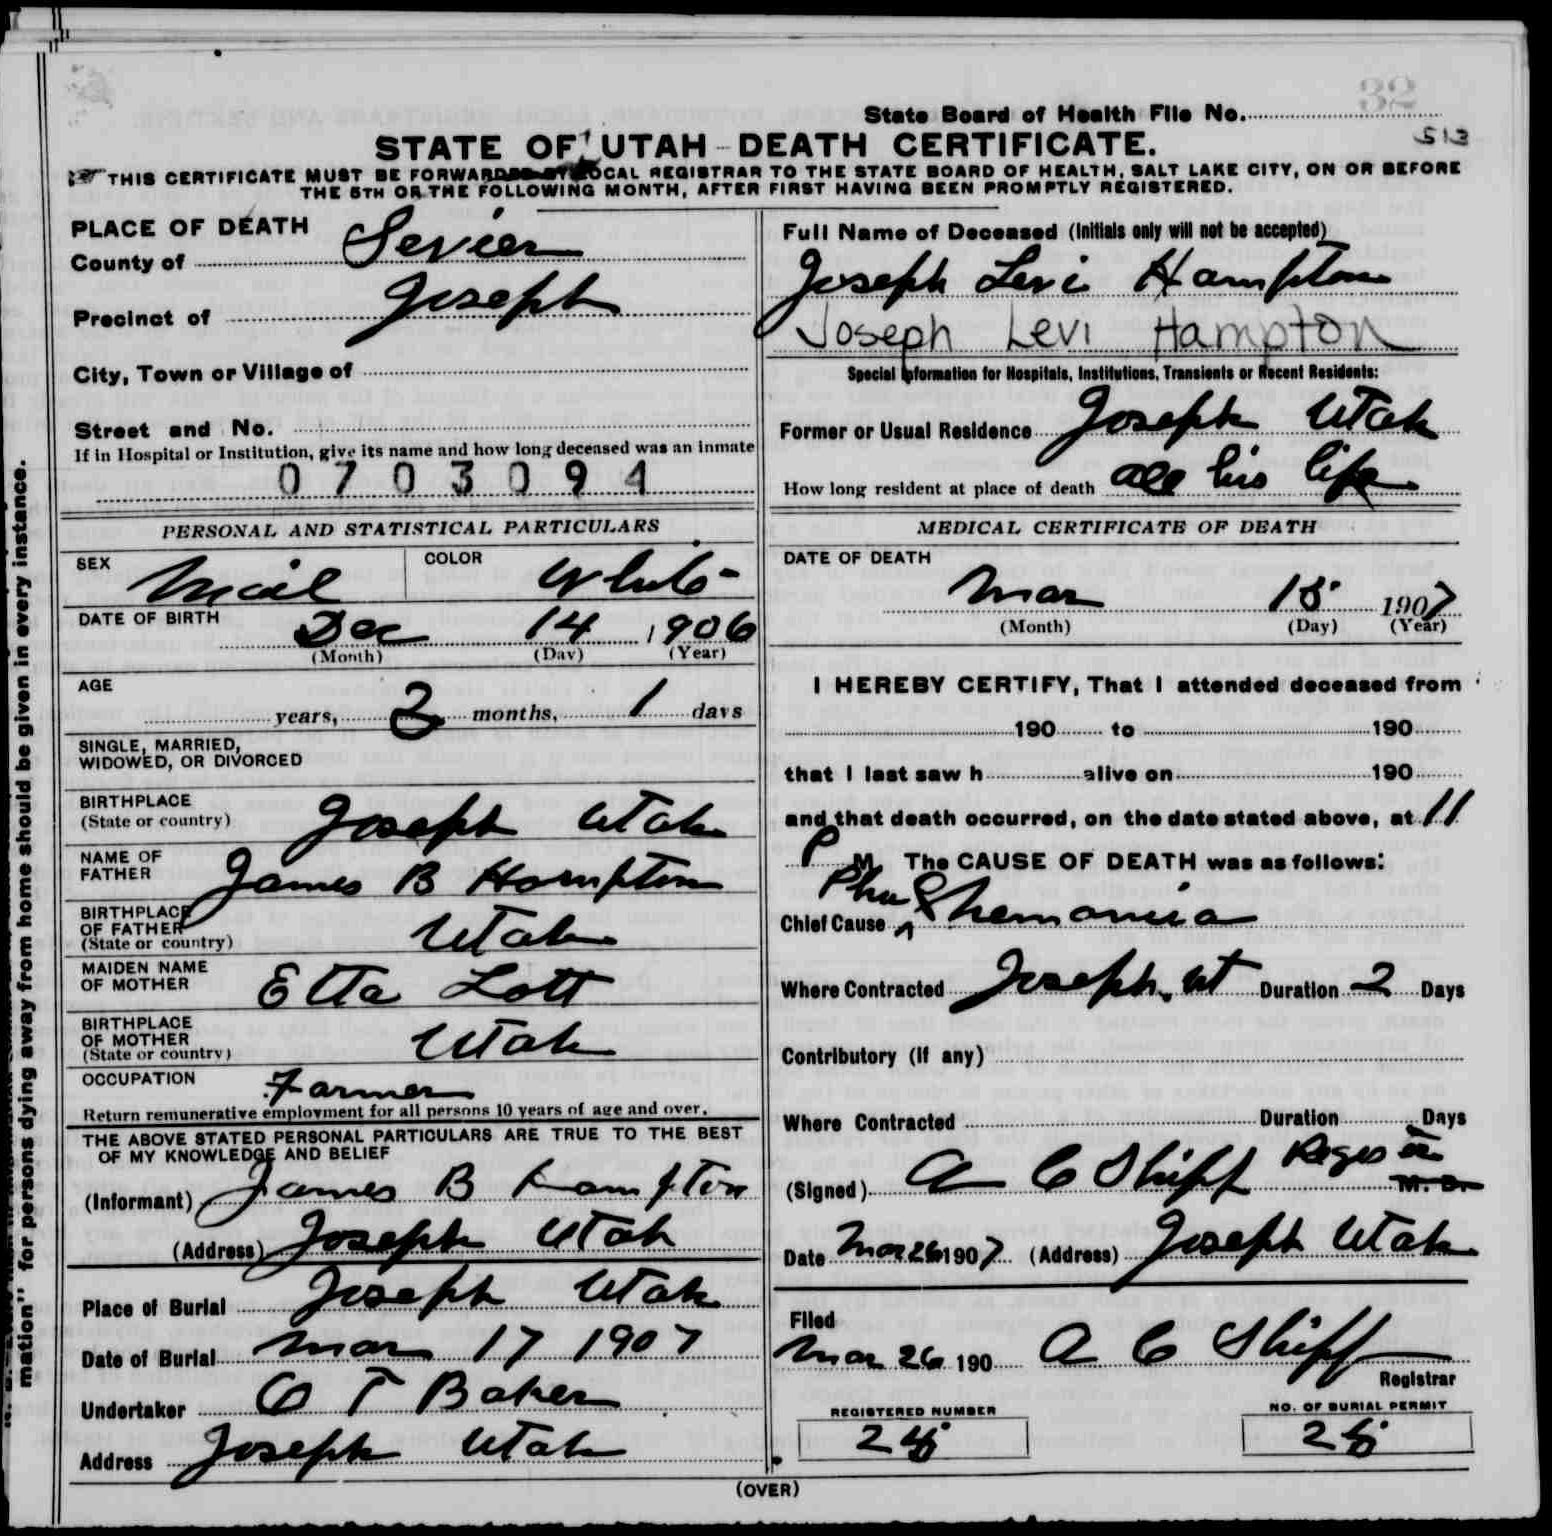 32
State Board of Health File No.
513
STATE OF UTAH - DEATH CERTIFICATE.
THIS CERTIFICATE MUST BE FORWARDED BY LOCAL REGISTRAR TO THE STATE BOARD OF HEALTH, SALT LAKE CITY, ON OR BEFORE
THE 5TH OR THE FOLLOWING MONTH, AFTER FIRST HAVING BEEN PROMPTLY REGISTERED.
PLACE OF DEATH
County of Sevier
Precinct of Joseph
City, Town or Village of
Street and No.
If in Hospital or Institution, give its name and how long deceased was an inmate
0703094
Full Name of Deceased (Initials only will not be accepted)
Joseph Levi Hampton
Joseph Levi Hampton
Special Information for Hospitals, Institutions, Transients or Recent Residents:
Former or Usual Residence Joseph Utah
How long resident at place of death all his life
PERSONAL AND STATISTICAL PARTICULARS
SEX Mail COLOR White
DATE OF BIRTH
Dec 14 1906
(Month) (Day) (Year)
AGE
years, 3 months, 1 days
SINGLE, MARRIED,
WIDOWED, OR DIVORCED
BIRTHPLACE
(State or country) Joseph Utah
NAME OF
FATHER James B Hampton
BIRTHPLACE
OF FATHER
(State or country) Utah
MAIDEN NAME
OF MOTHER Etta Lott
BIRTHPLACE
OF MOTHER
(State or country) Utah
OCCUPATION Farmer
Return remunerative employment for all persons 10 years of age and over.
THE ABOVE STATED PERSONAL PARTICULARS ARE TRUE TO THE BEST
OF MY KNOWLEDGE AND BELIEF
(Informant) James B Hampton
(Address) Joseph Utah
Place of Burial Joseph Utah
Date of Burial Mar 17 1907
Undertaker O T Baker
Address Joseph Utah
MEDICAL CERTIFICATE OF DEATH
DATE OF DEATH
Mar 15 1907
(Month) (Day) (Year)
I HEREBY CERTIFY, That I attended deceased from
190 to 190
that I last saw h alive on 190
and that death occurred, on the date stated above, at 11
P M. The CAUSE OF DEATH was as follows:
Chief Cause
Where Contracted Joseph, Ut Duration 2 Days
Contributory (If any)
Where Contracted Duration Days
(Signed) A C Shipp M. D.
Date Mar 26 1907 (Address) Joseph Utah
Filed
Mar 26 190 A C Shipp
Registrar
REGISTERED NUMBER
NO. OF BURIAL PERMIT
(OVER)
mation" for persons dying away from home should be given in every instance.